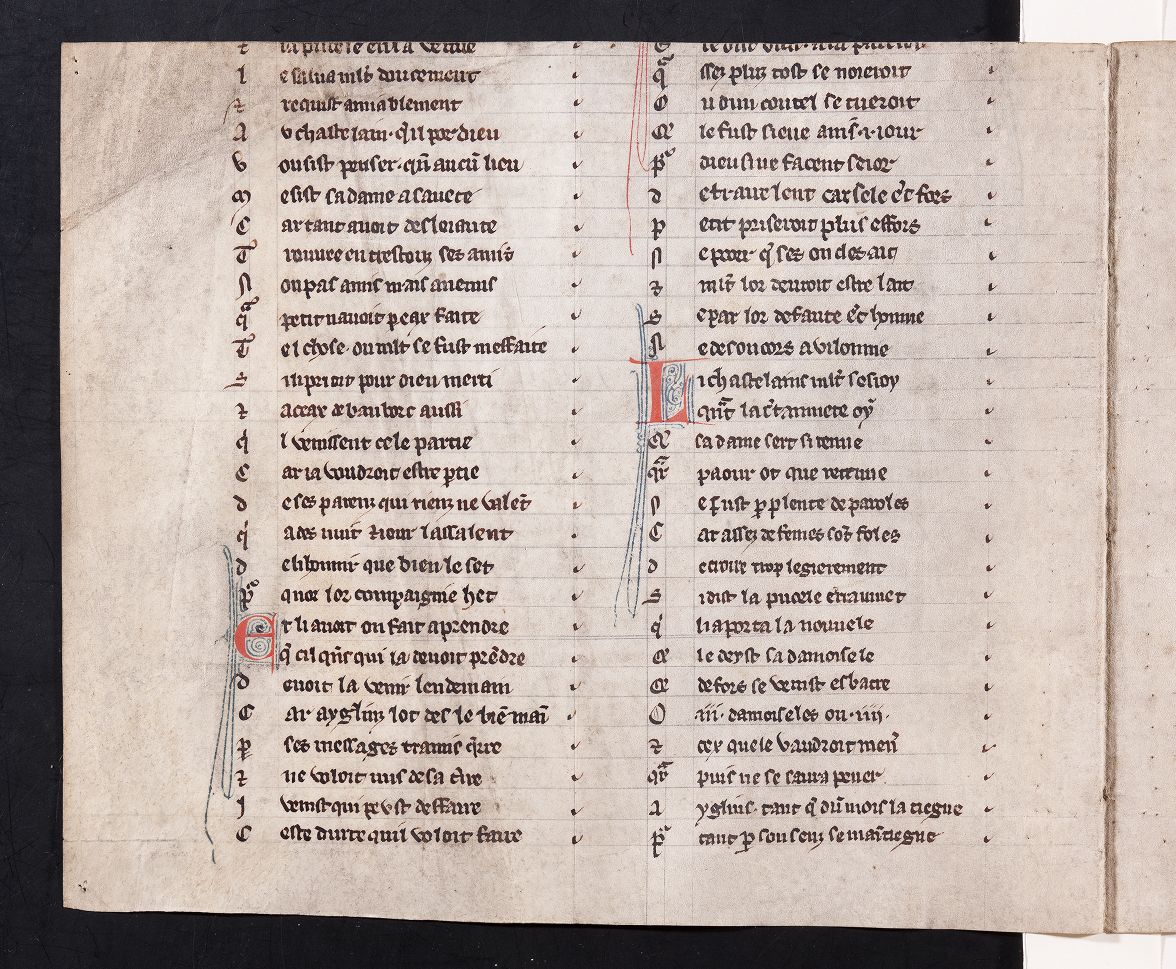 l e salua mlt doucement
⁊ requist amiablement
A v chastelain · qil por dieu
V ousist penser · qn aucu lieu
M esist sa dame a sauete
C ar tant auoit desloiaute
T rouuee en trestouz ses amis
N on pas amis mais anemis
petit nauoit pear faite
T el chose · ou mlt se fust meffaite
S il priout pour dieu merci
⁊ aceax de baubort aussi
q l venissent cele partie
C ar ia voudroit estre ptie
d e ses parenz qui rienz ne valet
q ades nuit ⁊ iour lassalent
d elibourir que bien le set
P quoi lor compaignie het
E t li auoit on fait aprendre
q cil qns qui ia deuoit predre
d euoit la venir lendemain
C ar ayglinz lot des le bie mai
P ses messages tramis qrre
⁊ ne voloit nus de sa tre
I venist qui peust deffaire
C este durte quil voloit faire
q ssez pluz tost se noieroit
O u dun coutel se tueroit
le fust sieue amis · i · iour
P dieu si ne facent seior
d etrauelent car sele est fors
P etit priseroit pluis effors
N e poeir q ses oncles ait
⁊ mlt lor deuroit estre lait
S e par lor defaute est hounie
N e de son cors a vilonnie
L i chastelains mlt sesioy
qnt la ctainnete oy
q sa dame sert si tenue
q paour ot que rettenue
N e fust p plente de paroles
C ar assez de femes sot foles
d ecroire trop legierement
S i dist la pucele erraument
q li aporta la nouuele
q le deyst sa damoisele
q defors se venist esbatre
O iii · damoiseles ou · iiii ·
⁊ cex quele vaudroit men
q puis ne se saura pener
A yglins · tant q dumois la tiegne
P tant p son senz se maitiegne